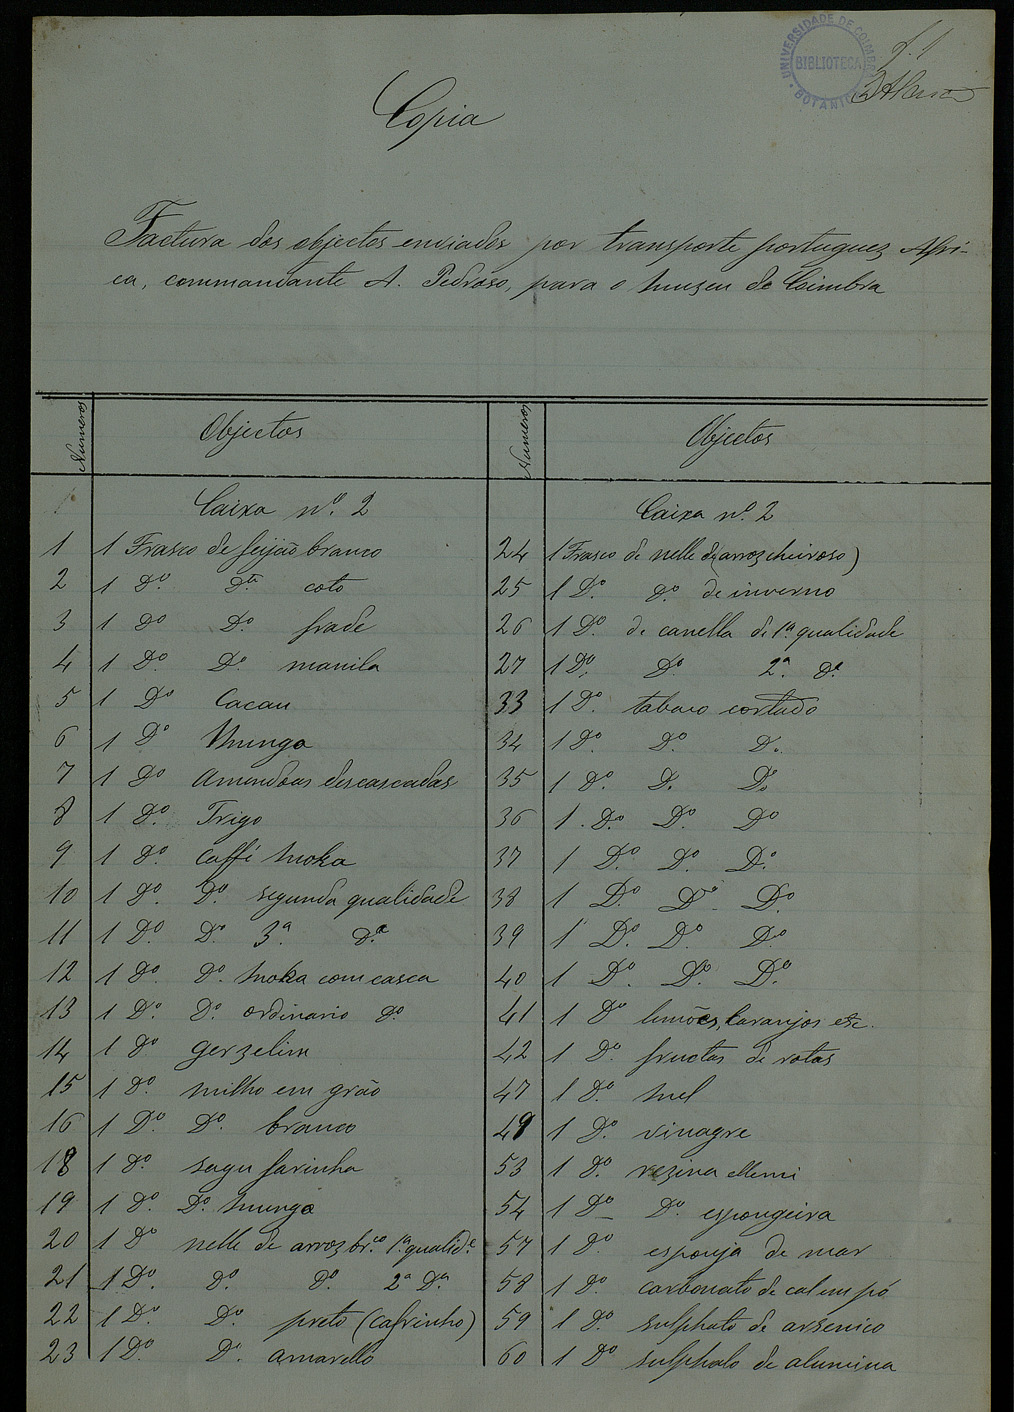 UNIVERSIDADE DE COIMBRA
BIBLIOTECA
BOTANIC
f. 1
Copia
Factura dos objectos enviados por transporte portuguez Afri-
ca, commandante A. Pedroso, para o museu de Coimbra
Numeros
Objectos
Caixa nº. 2
1 1 Frasco de feijão branco
2 1 Dº. Dº. coto
3 1 Dº Dº. frade
4 1 Dº. Dº manila
5 1 Dº Cacau
6 1 Dº Mungo
7 1 Dº Amendoas descascadas
8 1 Dº. Trigo
9 1 Dº. Caffé moka
10 1 Dº. Dº. segunda qualidade
11 1 Dº. Dº. 3ª. Dª
12 1 Dº Dº. moka com casca
13 1 Dº. Dº. ordinario Dº.
14 1 Dº gerzelim
15 1 Dº. milho em grão
16 1 Dº. Dº. branco
18 1 Dº. sagu farinha
19 1 Dº. Dº. mungo
20 1 Dº nelle de arroz br.co 1ª qualid.e
21 1 Dº. Dº. Dº. 2ª Dª
22 1 Dº. Dº. preto (cafrinho)
23 1 Dº. Dº. amarello
Numeros
Objectos
Caixa nº. 2
24 1 Frasco de nelle (arroz cheiroso)
25 1 Dº. Dº. de inverno
26 1 Dº. de canella de 1ª qualidade
27 1 Dº. Dº. 2ª. Dª
33 1 Dº. tabaco cortado
34 1 Dº. Dº. Dº.
35 1 Dº. D. Dº
36 1 Dº. Dº. Dº
37 1 Dº. Dº. Dº.
38 1 Dº. Dº. Dº.
39 1 Dº. Dº. Dº
40 1 Dº. Dº. Dº.
41 1 Dº limões, laranjas etc.
42 1 Dº. fructas de rotas
47 1 Dº. mel
49 1 Dº. vinagre
53 1 Dº. rezina ellemi
54 1 Dº Dº. espongeira
57 1 Dº. esponja de mar
58 1 Dº. carbonato de cal em pó
59 1 Dº. sulphato de arsenico
60 1 Dº sulphato de alumina